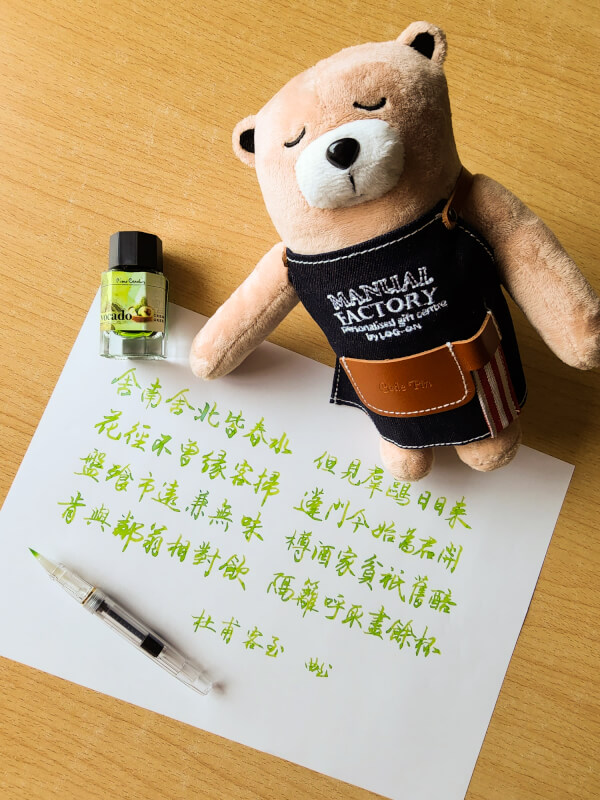 Pierre Cardin
vocado
MANUAL
FACTORY
personalised gift centre
by LOG-ON
舍南舍北皆春水 但見羣鷗日日来
花徑不曾緣客掃 蓬門今始為君開
盤飧市遠兼無味 樽酒家貧祇舊醅
肯與鄰翁相對飲 隔籬呼取盡餘杯
杜甫 客至